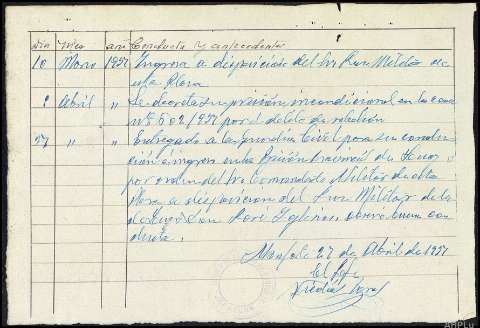 Dia Mes año Conducta y antecedentes
10 Marzo 1937 Ingresa a disposición del Sr. Juez Militar de
esta Plaza
Abril " Se decreta su prisión incondicional en la causa
nº 502/937 por el delito de rebelión
27 " " Entregado a la Guardia Civil para su conduc-
ción e ingreso en la Prisión Provincial de
por orden del Sr. Comandante Militar de esta
Plaza a disposición del Juez Militar de la
de Lugo Don José Iglesias, observo buena con-
ducta.
27 de Abril de 1937
El Jefe
AHPLu